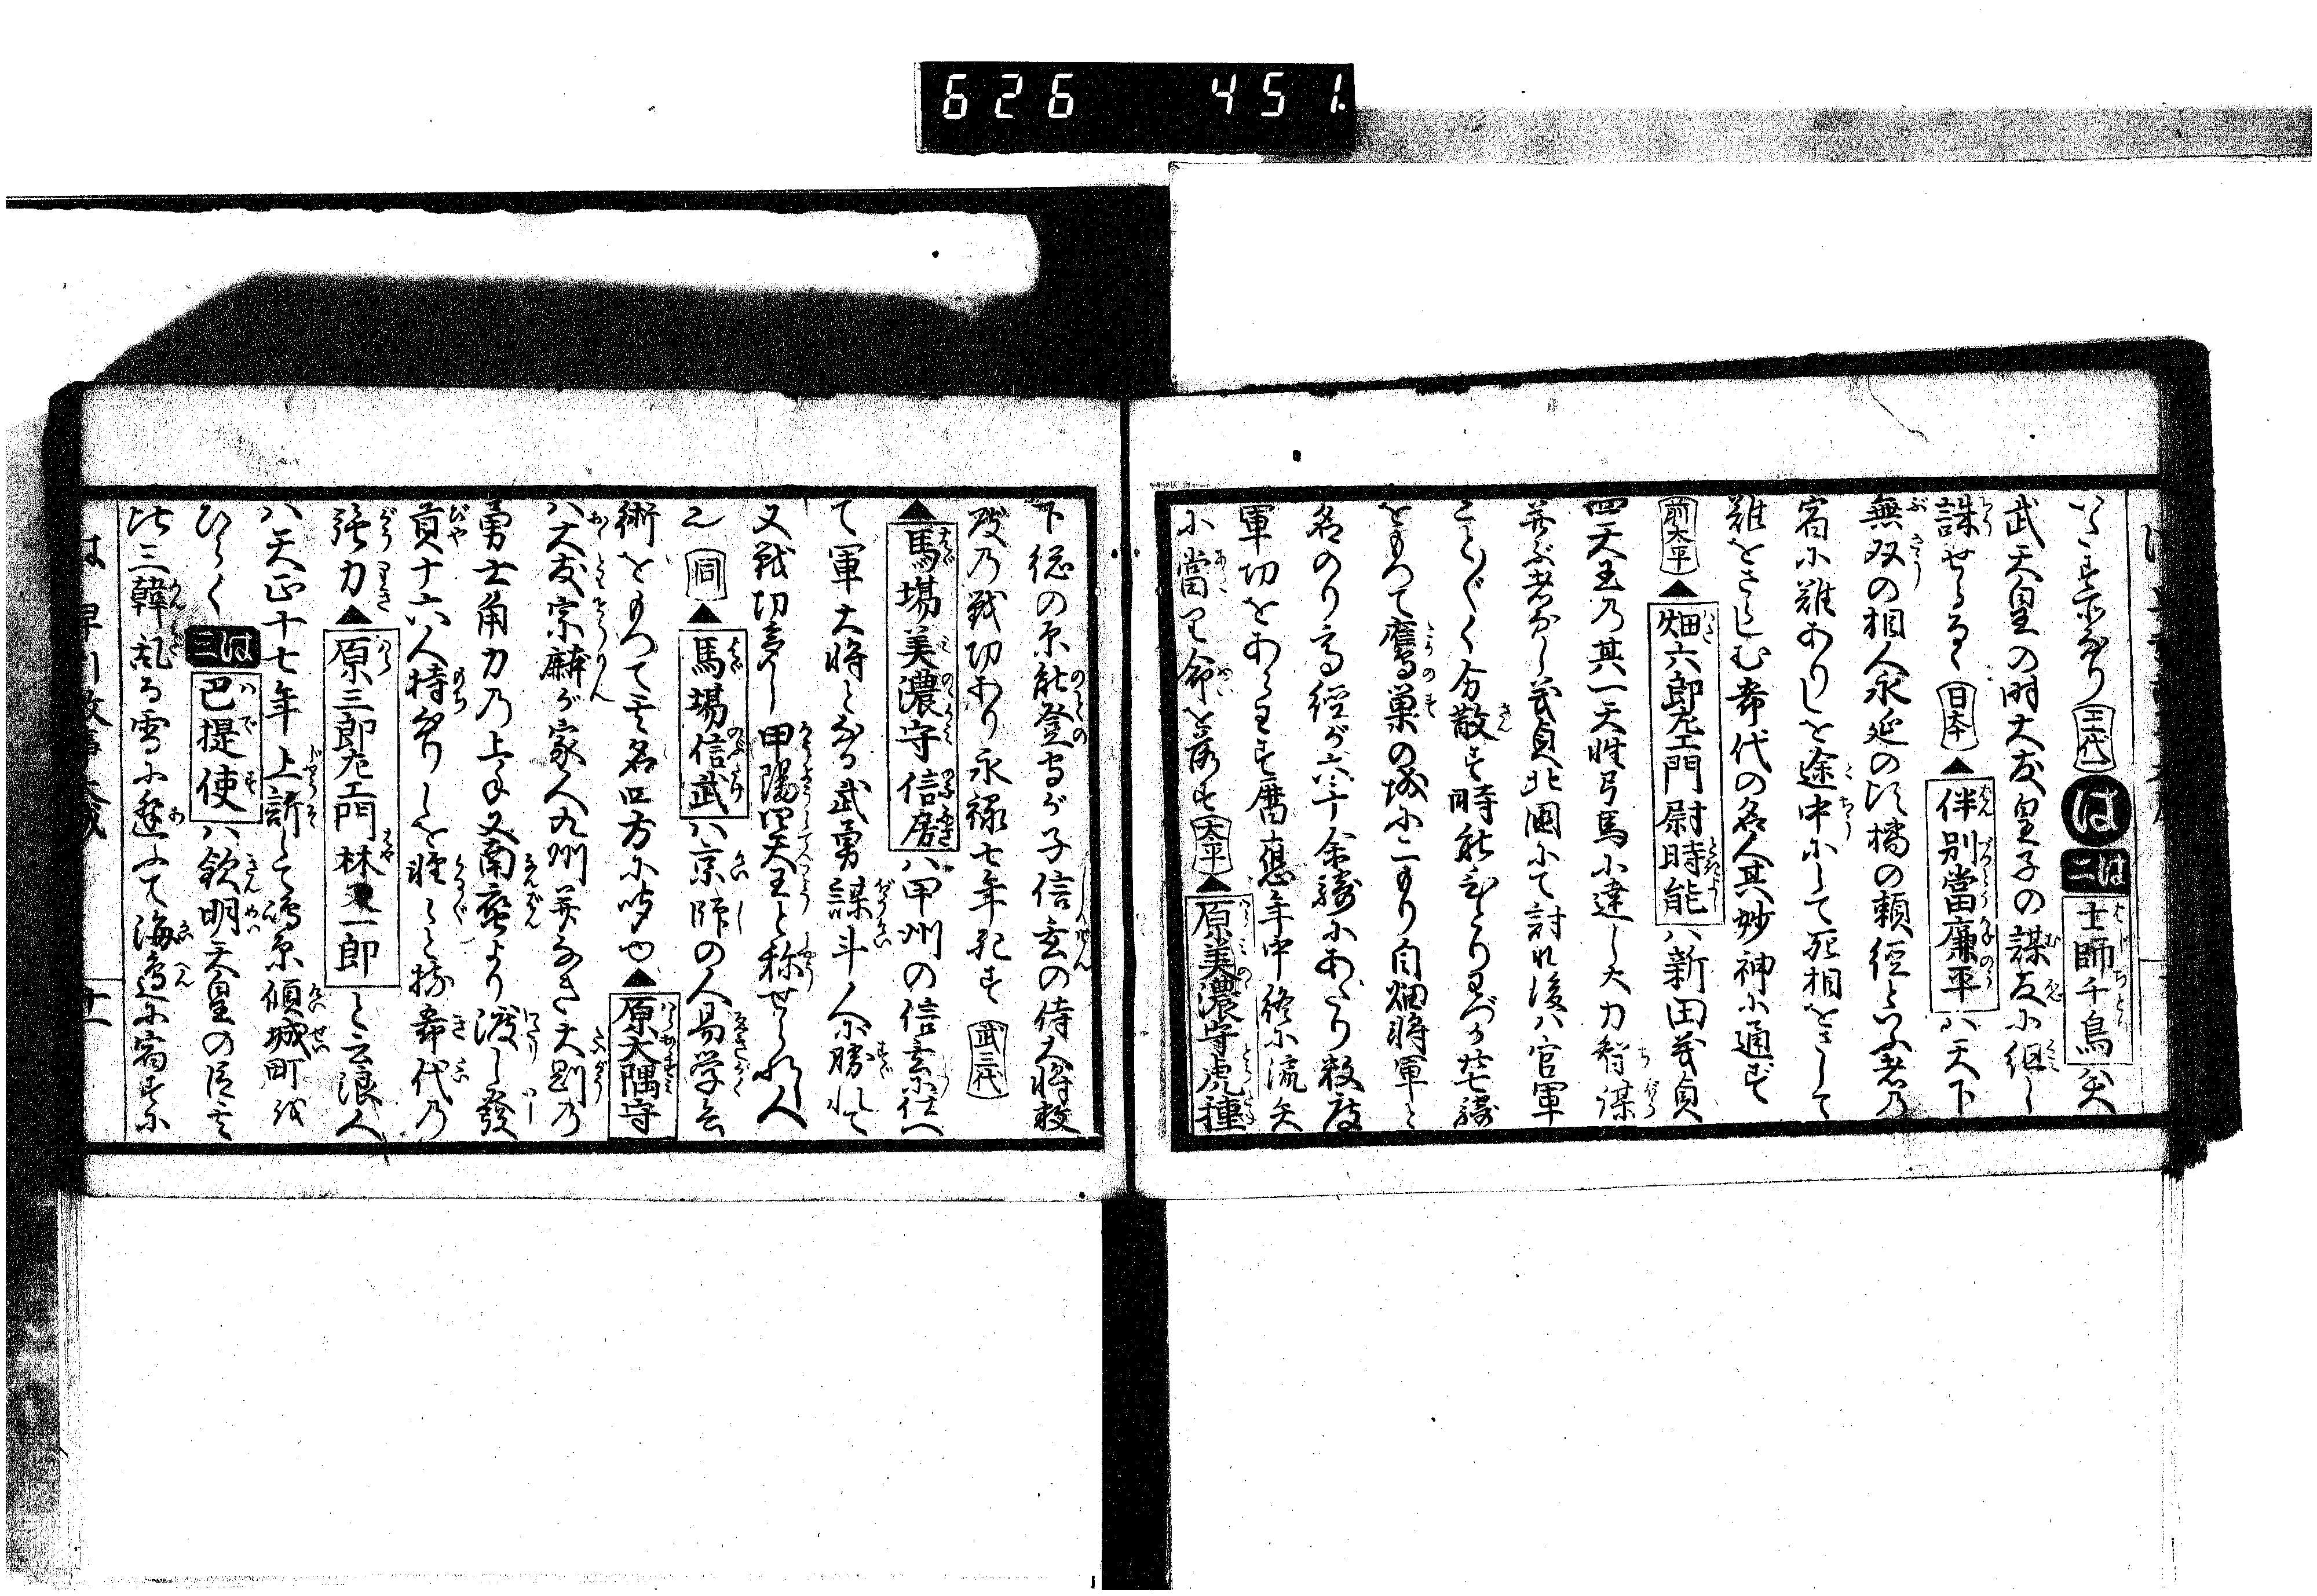 626 451
武天皇の時大友皇子の謀反に組し
誅せらるゝ 日本 ▲伴別當廉平ハ天下
無双の相人永延の比橘の頼経といふ者乃
宿に雑ありしを途中にして死相をさして
雑をさらしむ希代の名人其妙神に通ず
前太平 ▲畑六郎左エ門尉時能ハ新田義貞
四天王乃其一天性弓馬に達し大力智謀
并ぶ者なし義貞北國にて討れ後ハ官軍
ことごとく分散す時能ひとりわづか廿七騎
をもつて鷹巣の城にこもり自畑将軍と
名のり高経が六千余騎にあたり数度
軍功をあらわす暦應年中終に流矢
に當り命を落す 太平 ▲原美濃守虎種
下総の原能登守が子信玄の侍大将数
度乃戦功あり永禄七年死す 武三代
▲馬場美濃守信房ハ甲州の信玄に仕へ
て軍大将となる武勇謀斗人に勝れて
又戦功多し甲陽四天王と称せられし人
也 同 ▲馬場信武ハ京師の人易学兵
術をもつて其名四方に聞ゆ也 ▲原大隅守
ハ大友宗麟が家人九州并なき大剛乃
勇士角力乃上手又南蛮より渡し發
貢十六人持なりしを軽々と持希代乃
強力 ▲原三郎左エ門林又一郎と云浪人
ハ天正十七年上訴して嶋原傾城町を
ひらく はニ 巴提使ハ欽明天皇の臣に
此三韓乱る雪に逢ふて海邊に宿すに